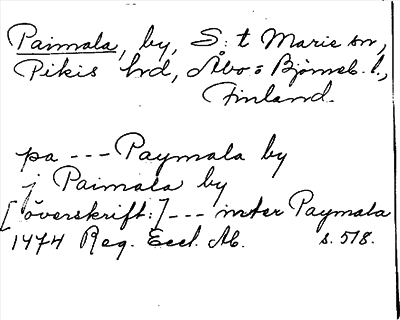 Paimala, by, S:t Marie sn,
Pikis hrd, Åbo=Björneb. l.,
Finland.
pa --- Paymala by
j Paimala by
[överskrift:] --- inter Paymala
1474 Reg. Eccl. Ab. s. 518.